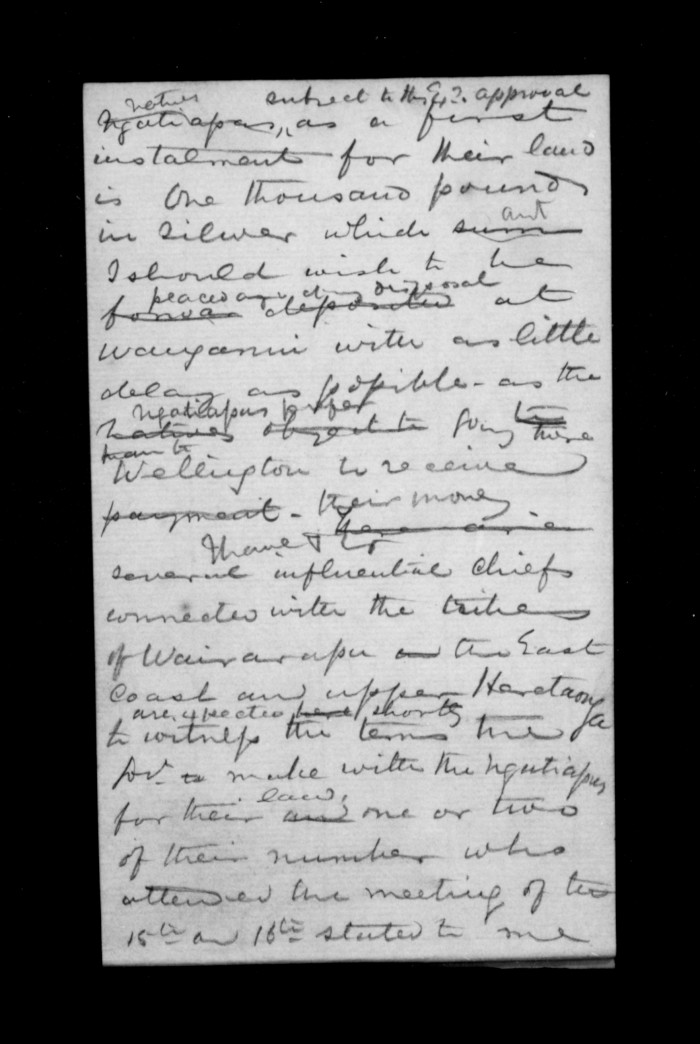 natives subject to His Ex? approval
Ngatiapas, as a first
instalment for their land
is One thousand pounds
in silver which sum
I should wish to be
placed at my disposal
deposited at
Wanganui with as little
delay as possible - as the
Ngatiapas prefer
natives object to going there
than to
Wellington to receive
payment - their money
I have
several influential Chiefs
connected with the tribes
of Wairarapa the East
Coast and upper Heretaonga
are expected here shortly
to witness the terms the
Gov.t make with the Ngatiapas
land,
for their and one or two
of their number who
attended the meeting of the
15th and 16th stated to me